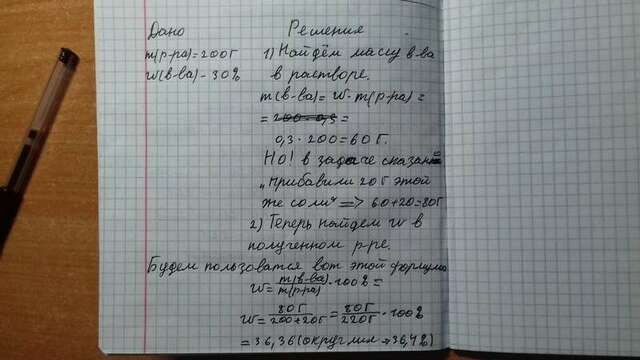 Дано
m(р-ра)=200г
w(в-ва)-30%
Решение
1) Найдём массу в-ва
в растворе.
m(в-ва)=w·m(р-ра)=
=200·0,3=
0,3·200=60г.
НО! в задаче сказано
"Прибавили 20г этой
же соли" => 60+20=80г
2) Теперь найдём w в
полученном р-ре.
Будем пользоватся вот этой формулой
w= m(в-ва)/m(р-ра) ·100%=
w= 80г/200+20г = 80г/220г ·100%
=36,36(округлим → 36,4%)